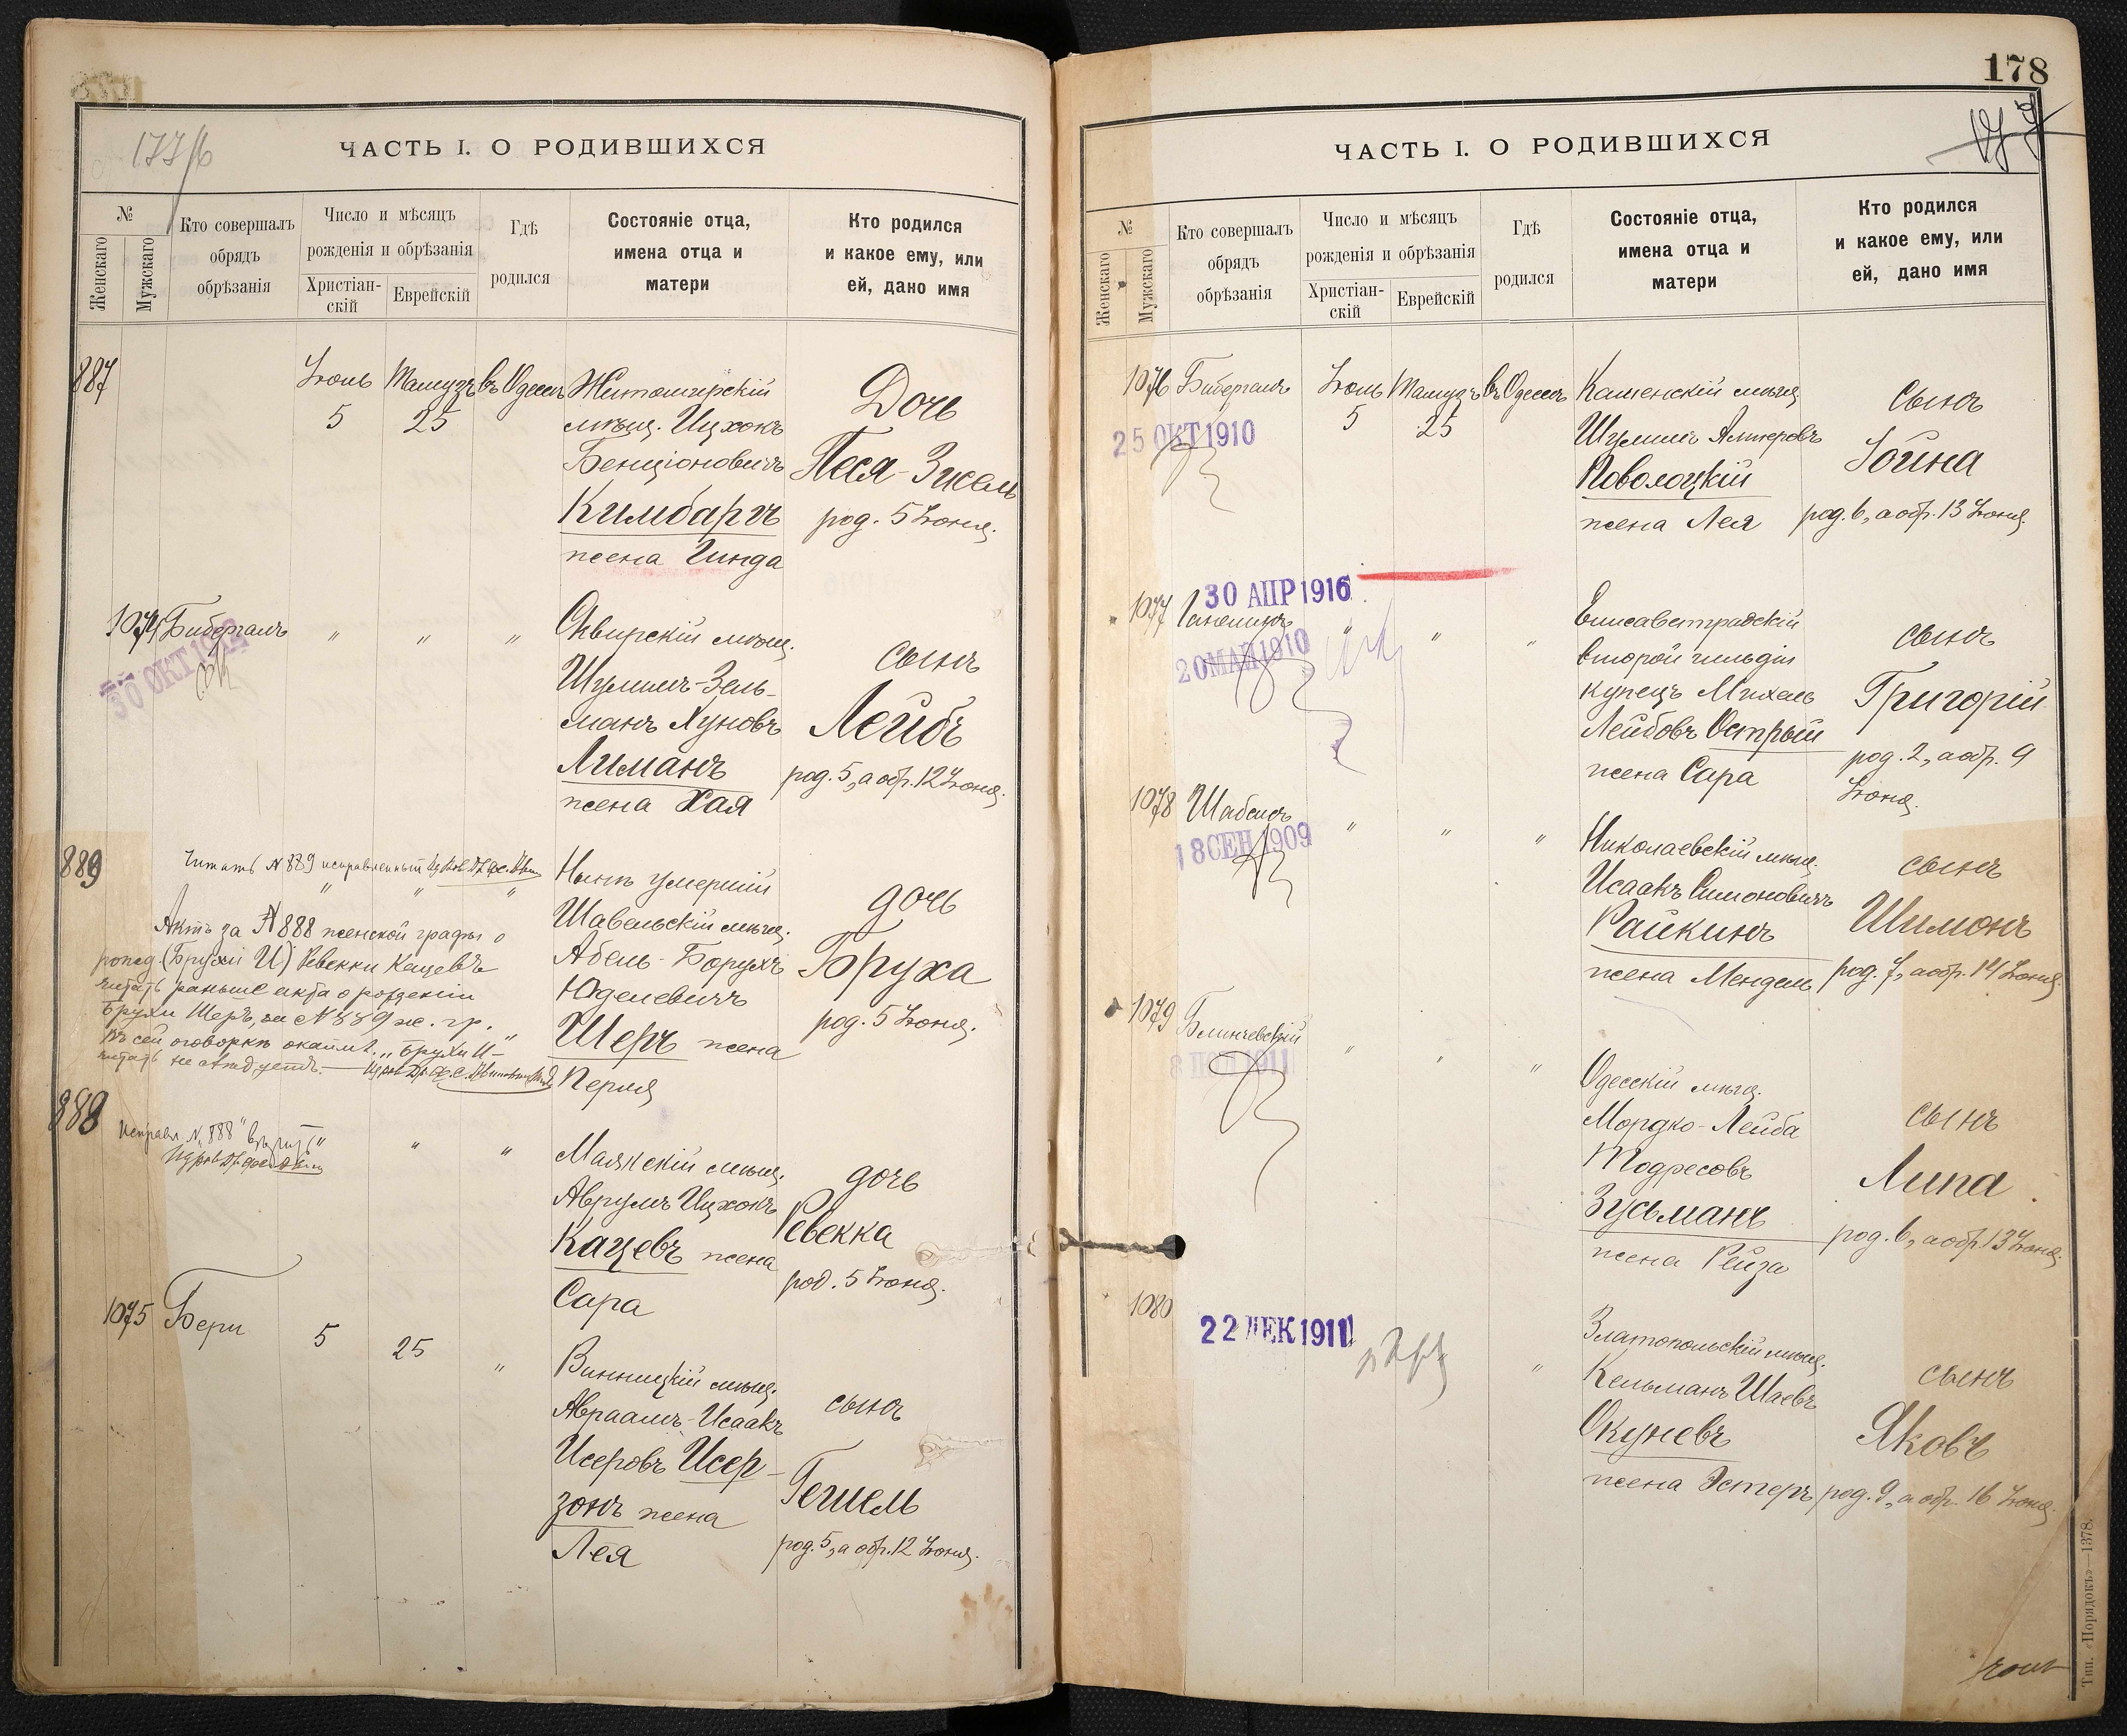 177/б
ЧАСТЬ I. О РОДИВШИХСЯ
№
Женскаго
Мужскаго
Кто совершалъ
обрядъ
обрѣзанія
Число и мѣсяцъ
рожденія и обрѣзанія
Христіан-
скій
Еврейскій
Гдѣ
родился
Состояніе отца,
имена отца и
матери
Кто родился
и какое ему, или
ей, дано имя
887
Іюль
5
Тамузъ
25
въ Одессѣ
Житомирскій
мѣщ. Ицхокъ
Бенціоновичъ
Кимбаргъ
жена Гинда
Дочь
Песя-Зисель
род. 5 Іюня.
1074
Бибергалъ
30 ОКТ 1912
"
"
"
Сквирскій мѣщ.
Шулимъ-Зель-
манъ Хуновъ
Лиманъ
жена Хая
сынъ
Лейбъ
род. 5, а обр. 12 Іюня.
889
Читать № 889 исправленный
"
"
"
Актъ за № 888 женской графы о
рожд. (Брухи И) Ревекки Кацевъ
читать раньше акта о рожденіи
Брухи Шеръ, за № 889 ж. гр.
Въ сей оговоркѣ „Брухи И"
читать не слѣдуетъ.
Нынѣ умершій
Шавельскій мѣщ.
Абель-Борухъ
Юделевичъ
Шеръ жена
Перля
дочь
Бруха
род. 5 Іюня.
888
Исправл. № "888" вѣрить
"
"
Маякскій мѣщ.
Аврумъ Ицхокъ
Кацевъ жена
Сара
дочь
Ревекка
род. 5 Іюня.
1075
Бери
5
25
"
Винницкій мѣщ.
Авраамъ-Исаакъ
Исеровъ Исер-
зонъ жена
Лея
сынъ
Гешель
род. 5, а обр. 12 Іюня.
178
ЧАСТЬ I. О РОДИВШИХСЯ
№
Женскаго
Мужскаго
Кто совершалъ
обрядъ
обрѣзанія
Число и мѣсяцъ
рожденія и обрѣзанія
Христіан-
скій
Еврейскій
Гдѣ
родился
Состояніе отца,
имена отца и
матери
Кто родился
и какое ему, или
ей, дано имя
1076
Бибергалъ
25 ОКТ 1910
Іюль
5
Тамузъ
25
въ Одессѣ
Каменскій мѣщ.
Шулимъ Алтеровъ
Поволоцкій
жена Лея
сынъ
Іойна
род. 6, а обр. 13 Іюня.
1077
30 АПР 1916
20 МАЙ 1910
"
"
"
Елисаветградскій
второй гильдіи
купецъ Михель
Лейбовъ Острый
жена Сара
сынъ
Григорій
род. 2, а обр. 9
Іюня.
1078
Шабсисъ
18 СЕН 1909
"
"
"
Николаевскій мѣщ.
Исаакъ Симоновичъ
Райкинъ
жена Мендель
сынъ
Шимонъ
род. 7, а обр. 14 Іюня.
1079
Блинчевскій
"
"
"
Одесскій мѣщ.
Мордко-Лейба
Тодресовъ
Зусьманъ
жена Рейза
сынъ
Липа
род. 6, а обр. 13 Іюня.
1080
22 ДЕК 1911
"
Златопольскій мѣщ.
Кельманъ Шаевъ
Окуневъ
жена Эстеръ
сынъ
Яковъ
род. 9, а обр. 16 Іюня.
Тип. «Порядокъ»—1378.